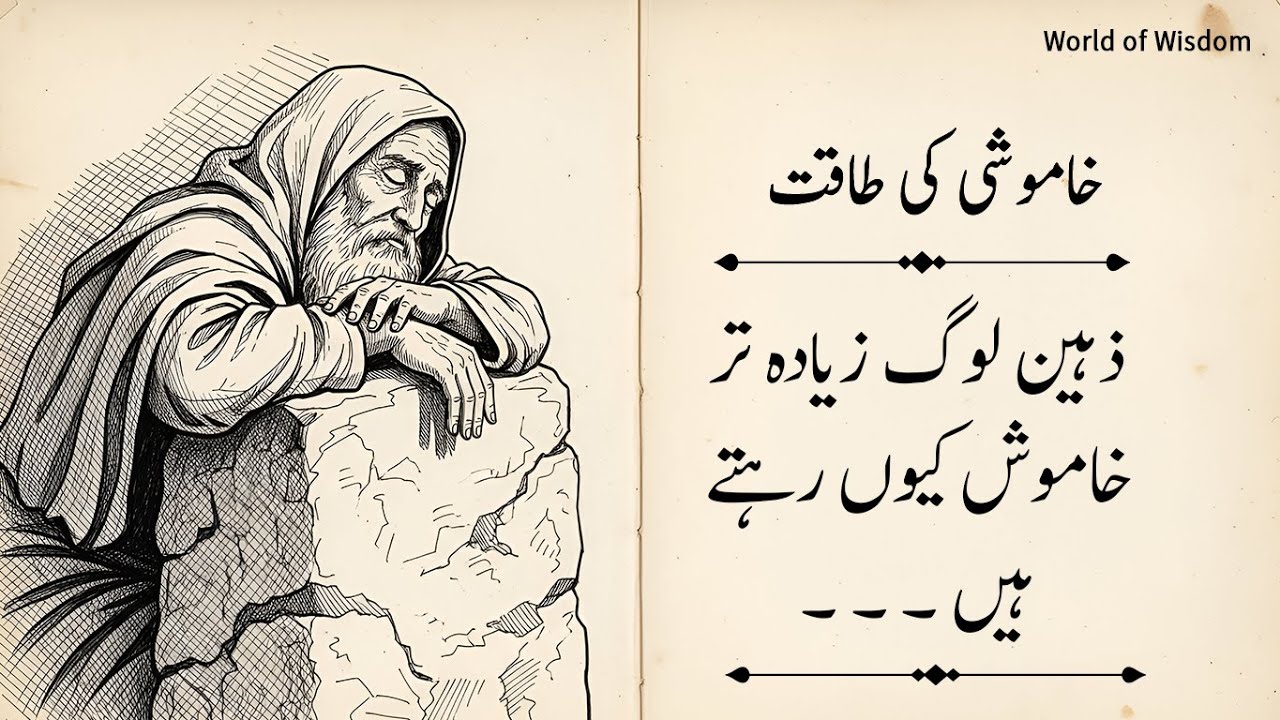 World of Wisdom
خاموشی کی طاقت
ذہین لوگ زیادہ تر
خاموش کیوں رہتے
ہیں ۔ ۔ ۔